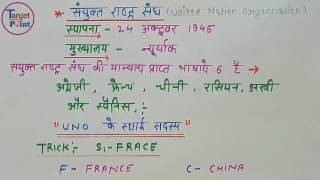 Target Point
* संयुक्त राष्ट्र संघ (United Nation Organisation)
स्थापना - 24 अक्टूबर 1945
मुख्यालय - न्यूयॉर्क
संयुक्त राष्ट्र संघ की मान्यता प्राप्त भाषाएं 6 है →
अंग्रेजी, फ्रेन्च, चीनी, रासियन, अरबी
और स्पैनिस,:-
"UNO के स्थाई सदस्य"
TRICK:- S1-FRACE
F- FRANCE C- CHINA